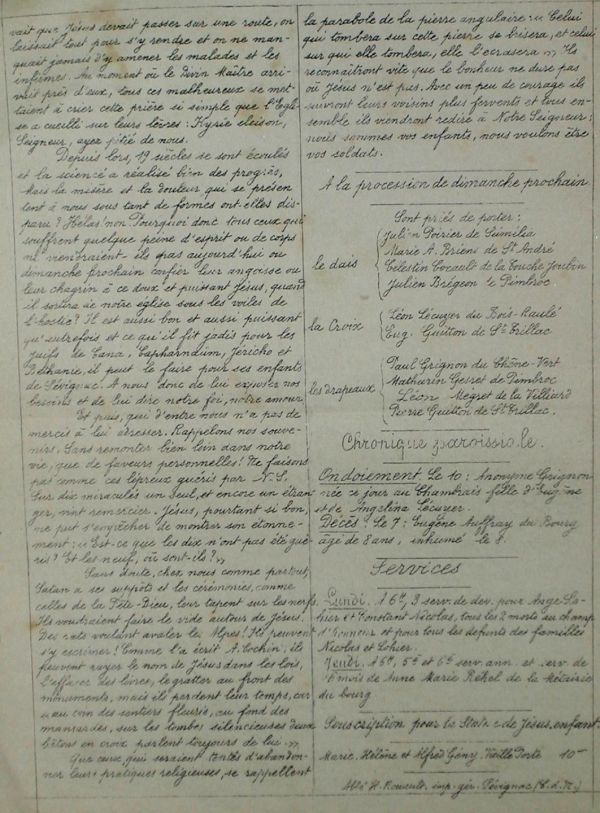 vait que Jésus devait passer sur une route, on
laissait tout pour s'y rendre et on ne man-
quait jamais d'y amener les malades et les
infirmes. Au moment où le Divin Maître arri-
vait près d'eux, tous ces malheureux se met-
taient à crier cette prière si simple que l'Egli-
se a cueilli sur leurs lèvres: Kyrie eleison,
Seigneur, ayez pitié de nous.
Depuis lors, 19 siècles se sont écoulés
et la science a réalisé bien des progrès,
Mais la misère et la douleur qui se présen
tent à nous sous tant de formes ont-elles dis-
paru? Hélas! non. Pourquoi donc tous ceux qui
souffrent quelque peine d'esprit ou de corps
ne viendraient ils pas aujourd'hui ou
dimanche prochain confier leur angoisse ou
leur chagrin à ce doux et puissant Jésus, quand
il sortira de notre église sous les voiles de
l'hostie? Il est aussi bon et aussi puissant
qu'autrefois et ce qu'il fit jadis pour les
juifs de Cana, Capharnaüm, Jéricho et
Béthanie, il peut le faire pour ses enfants
de Pévignac. A nous donc de lui exposer nos
besoins et de lui dire notre foi, notre amour.
Et puis, qui d'entre nous n'a pas de
mercis à lui adresser. Rappelons nos souve-
nirs. Sans remonter bien loin dans notre
vie, que de faveurs personnelles! Ne faisons
pas comme ces lépreux guéris par N.S.
Sur dix miraculés un seul, et encore un étran
ger, vint remercier. Jésus, pourtant si bon,
ne put s'empêcher de montrer son étonne-
ment: « Est-ce que les dix n'ont pas été gué-
ris? Et les neuf, où sont-ils? »
Sans doute, chez nous comme partout,
Satan a ses suppôts et les cérémonies, comme
celles de la Fête-Dieu, leur tapent sur les nerfs.
Ils voudraient faire le vide autour de Jésus.
Des rats voulant avaler les Alpes! Ils peuvent
s'y escrimer! Comme l'a écrit A. Cochin, ils
peuvent rayer le nom de Jésus dans les lois,
l'effacer des livres, le gratter au front des
monuments, mais ils perdent leur temps, car
« au coin des sentiers fleuris, au fond des
mansardes, sur les tombes silencieuses deux
bâtons en croix parlent toujours de lui. »
Que ceux, qui seraient tentés d'abandon-
ner leurs pratiques religieuses, se rappellent
la parabole de la pierre angulaire: « Celui
qui tombera sur cette pierre se brisera, et celui
sur qui elle tombera, elle l'écrasera ». Ils
reconnaîtront vite que le bonheur ne dure pas
où Jésus n'est pas. Avec un peu de courage ils
suivront leurs voisins plus fervents et tous en-
semble ils viendront redire à Notre Seigneur:
nous sommes vos enfants, nous voulons être
vos soldats.
A la procession de dimanche prochain
Sont priés de porter:
le dais
Julien Poirier de
Marie A. Briend de St André
Célestin Cocault de la Touche Joubin
Julien Brégeon le Pimbroc
la Croix
Léon Lécuyer du Bois-Raulé
Eug. Guitton de St Trillac
les drapeaux
Paul Grignon du Chêne-Vert
Mathurin Gesret de Pimbroc
Léon Megret de la Villiard
Pierre Guitton de St Trillac.
Chronique paroissiale.
Ondoiement. Le 10: Anonyme Grignon
née ce jour au Chambrais fille d'Eugène
et de Angelina Lécuyer.
Décès: Le 7: Eugène Auffray du Bourg
âgé de 8 ans, inhumé le 8.
Services
Lundi. A 6h, 3 serv. de dev. pour Ange
et Constant Nicolas, tous les 2 morts au champ
d'honneur et pour tous les défunts des familles
Nicolas et Lohier.
Jeudi. A 6h, 5e et 6e serv. ann. et serv. de
6 mois de Anne Marie Rehel de la Métairie
du bourg
Souscription pour la Statue de Jésus enfant
Marie, Hélène et Alfred Gény, Vieille Porte 10
Abbé H. Rouault, imp. gér. Pévignac (C.d.N.)